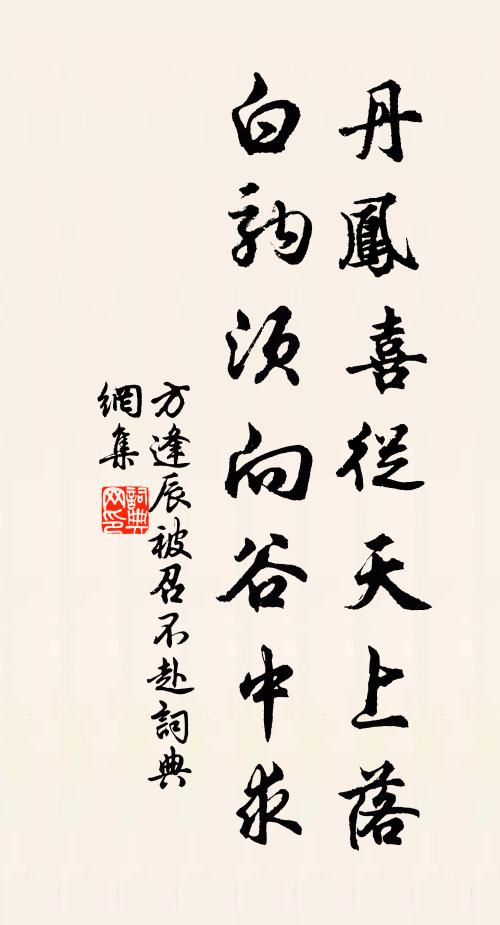 丹鳳喜從天上落
白駒須向谷中求
方逢辰被召不赴詞典
網集
詞典網印